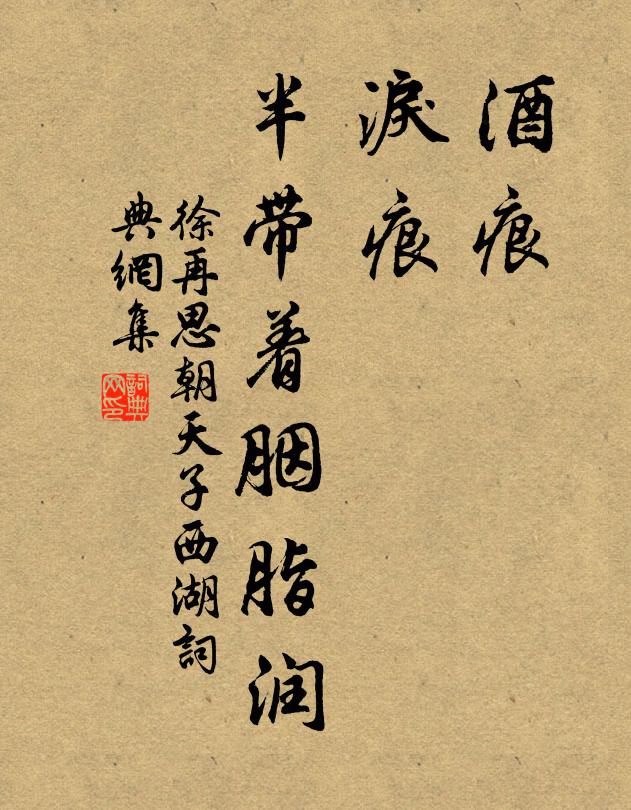 酒痕
淚痕
半带着胭脂润
徐再思朝天子西湖詞
典網集
詞典网印